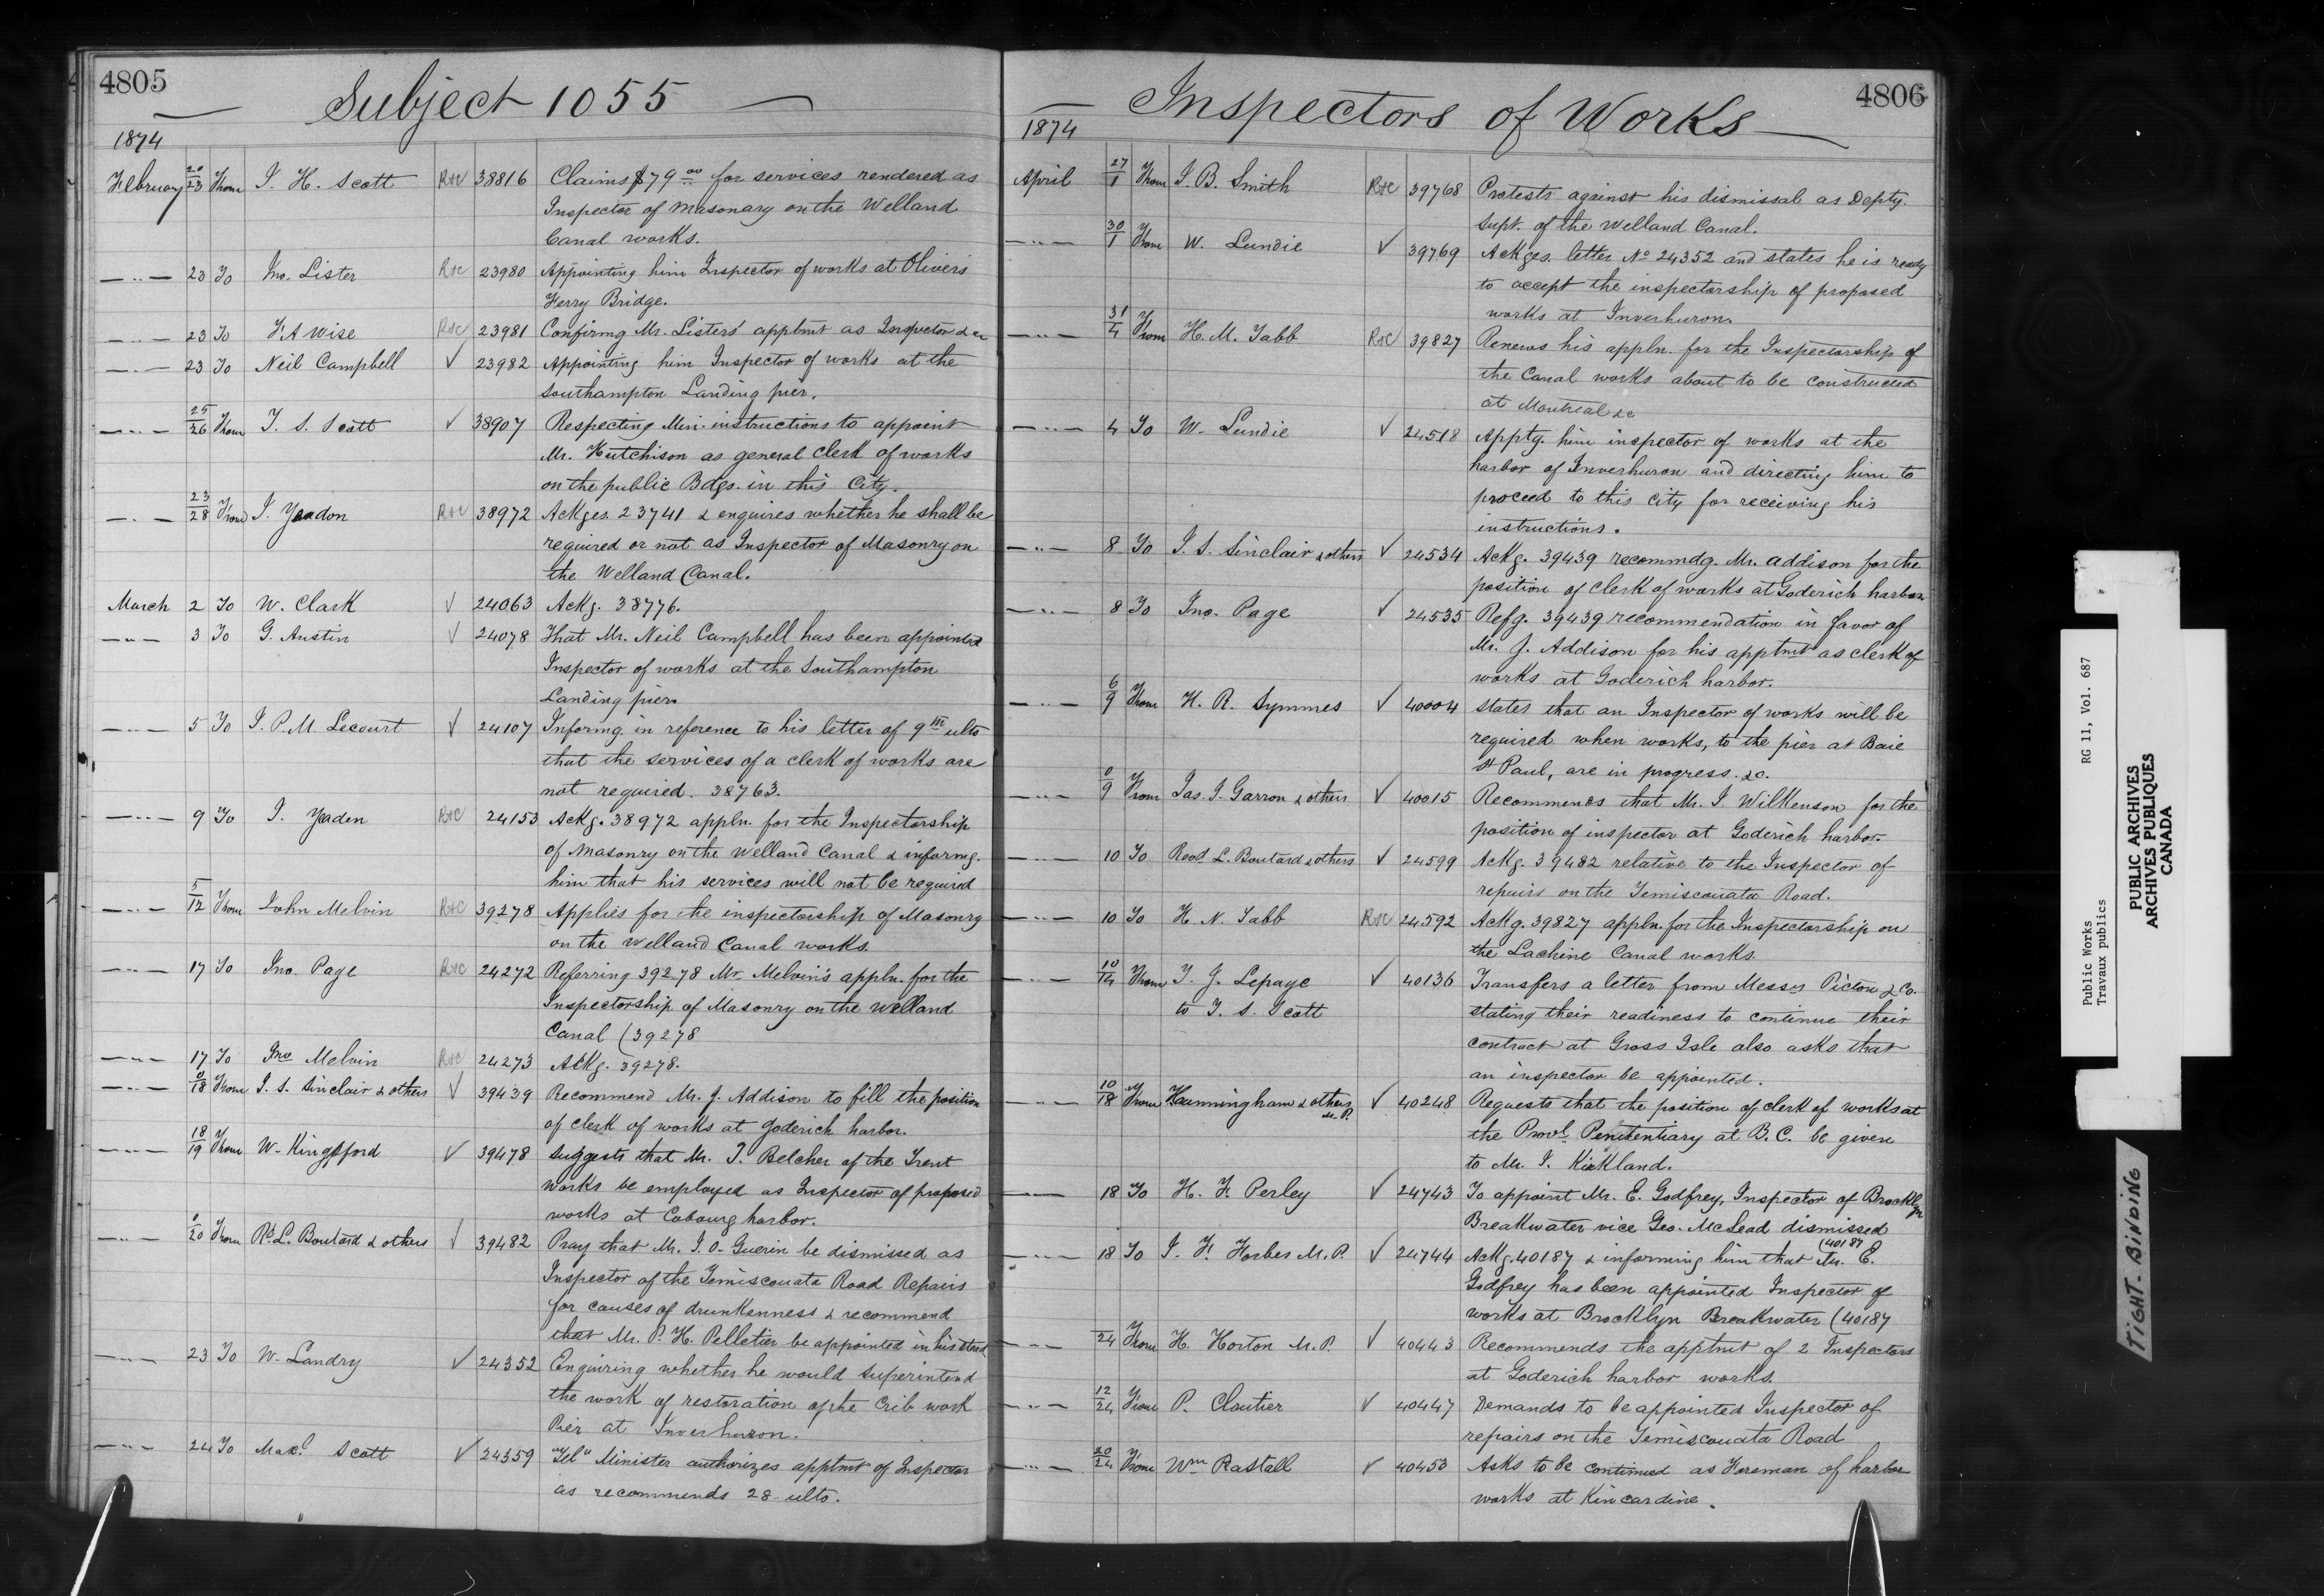 4805
Subject 1055
1874
February 20/23 From J. H. Scott R&C 38816 Claims $79.00 for services rendered as
Inspector of Masonary on the Welland
Canal works.
—"— 23 To Jno. Lister R&C 23980 Appointing him Inspector of works at Olivers
Ferry Bridge.
—"— 23 To F. A Wise R&C 23981 Confirmg Mr. Listers' apptmt as Inspector &c
—"— 23 To Neil Campbell ✓ 23982 Appointing him Inspector of works at the
Southampton Landing pier.
—"— 25/26 From T. S. Scott ✓ 38907 Respecting Min. instructions to appoint
Mr. Hutchison as general clerk of works
on the public Bdgs. in this City.
—"— 23/28 From J. Yeadon R&C 38972 Ackges. 23741 & enquires whether he shall be
required or not as Inspector of Masonry on
the Welland Canal.
March 2 To W. Clark ✓ 24063 Ackg. 38776.
—"— 3 To G. Austin ✓ 24078 That Mr. Neil Campbell has been appointed
Inspector of works at the Southampton
Landing pier.
—"— 5 To J. P. M. Lecourt ✓ 24107 Informg. in reference to his letter of 9th ulto
that the services of a clerk of works are
not required. 38763.
—"— 9 To J. Yeaden R&C 24153 Ackg. 38972 appln. for the Inspectorship
of Masonry on the Welland Canal & informg.
him that his services will not be required
—"— 5/12 From John Melvin R&C 39278 Applies for the inspectorship of Masonry
on the Welland Canal works.
—"— 17 To Jno. Page R&C 24272 Referring 39278 Mr. Melvin's appln. for the
Inspectorship of Masonry on the Welland
Canal (39278
—"— 17 To Jno Melvin R&C 24273 Ackg. 39278.
—"— 0/18 From J. S. Sinclair & others ✓ 39439 Recommend Mr. J. Addison to fill the position
of clerk of works at Goderich harbor.
—"— 18/19 From W. Kingsford ✓ 39478 Suggests that Mr. J. Belcher of the Trent
works be employed as Inspector of proposed
works at Cobourg harbor.
—"— 0/20 From Rd. L. Boutard & others ✓ 39482 Pray that Mr. J. O. Guerin be dismissed as
Inspector of the Temiscouata Road Repairs
for causes of drunkenness & recommend
that Mr. P. H. Pelletier be appointed in his stead
—"— 23 To W. Landry ✓ 24352 Enquiring whether he would superintend
the work of restoration of the Crib work
Pier at Inverhuron.
—"— 24 To Scott ✓ 24359 "Tel" Minister authorizes apptmt of Inspector
as recommends 28 ulto.
4806
Inspectors of Works
1874
April 27/1 From J. B. Smith R&C 39768 Protests against his dismissal as Depty.
Supt. of the Welland Canal.
—"— 30/1 From W. Lundie ✓ 39769 Ackges. letter No 24352 and states he is ready
to accept the inspectorship of proposed
works at Inverhuron.
—"— 31/4 From H. M. Tabb R&C 39827 Renews his appln. for the Inspectorship of
the Canal works about to be constructed
at Montreal &c
—"— 4 To W. Lundie ✓ 24518 Apptg. him inspector of works at the
harbor of Inverhuron and directing him to
proceed to this city for receiving his
instructions.
—"— 8 To J. S. Sinclair & others ✓ 24534 Ackg. 39439 recommdg. Mr. Addison for the
position of clerk of works at Goderich harbor
—"— 8 To Jno. Page ✓ 24535 Refg. 39439 recommendation in favor of
Mr. J. Addison for his apptmt as clerk of
works at Goderich harbor.
—"— 6/9 From H. R. Symmes ✓ 40004 States that an Inspector of works will be
required when works, to the pier at Baie
St Paul, are in progress. &c.
—"— 0/9 From Jas. J. Garron & others ✓ 40015 Recommends that Mr. J. Wilkenson for the
position of inspector at Goderich harbor.
—"— 10 To Revd. L. Boutard & others ✓ 24599 Ackg. 39482 relative to the Inspector of
repairs on the Temiscouata Road.
—"— 10 To H. N. Tabb R&C 24592 Ackg. 39827 appln. for the Inspectorship on
the Lachine Canal works.
—"— 10/14 From T. J. Lepage ✓ 40136 Transfers a letter from Messrs Picton & Co.
to T. S. Scott stating their readiness to continue their
contract at Gross Isle also asks that
an inspector be appointed.
—"— 10/18 From Hcunningham & others M.P. ✓ 40248 Requests that the position of clerk of works at
the Provl. Penitentiary at B. C. be given
to Mr. J. Kirkland.
—"— 18 To H. F. Perley ✓ 24743 To appoint Mr. E. Godfrey, Inspector of Brooklyn
Breakwater vice Geo. McLead dismissed
(40187
—"— 18 To J. F. Forbes M. P. ✓ 24744 Ackg. 40187 & informing him that Mr. E.
Godfrey has been appointed Inspector of
works at Brocklyn Breakwater (40187
—"— 24 From H. Horton M. P. ✓ 40443 Recommends the apptmt of 2 Inspectors
at Goderich harbor works.
—"— 12/24 From P. Cloutier ✓ 40447 Demands to be appointed Inspector of
repairs on the Temiscouata Road
—"— 20/24 From Wm Rastall ✓ 40453 Asks to be continued as Foreman of harbor
works at Kincardine.
Public Works RG 11, Vol. 687
Travaux publics
PUBLIC ARCHIVES
ARCHIVES PUBLIQUES
CANADA
TIGHT BINDING